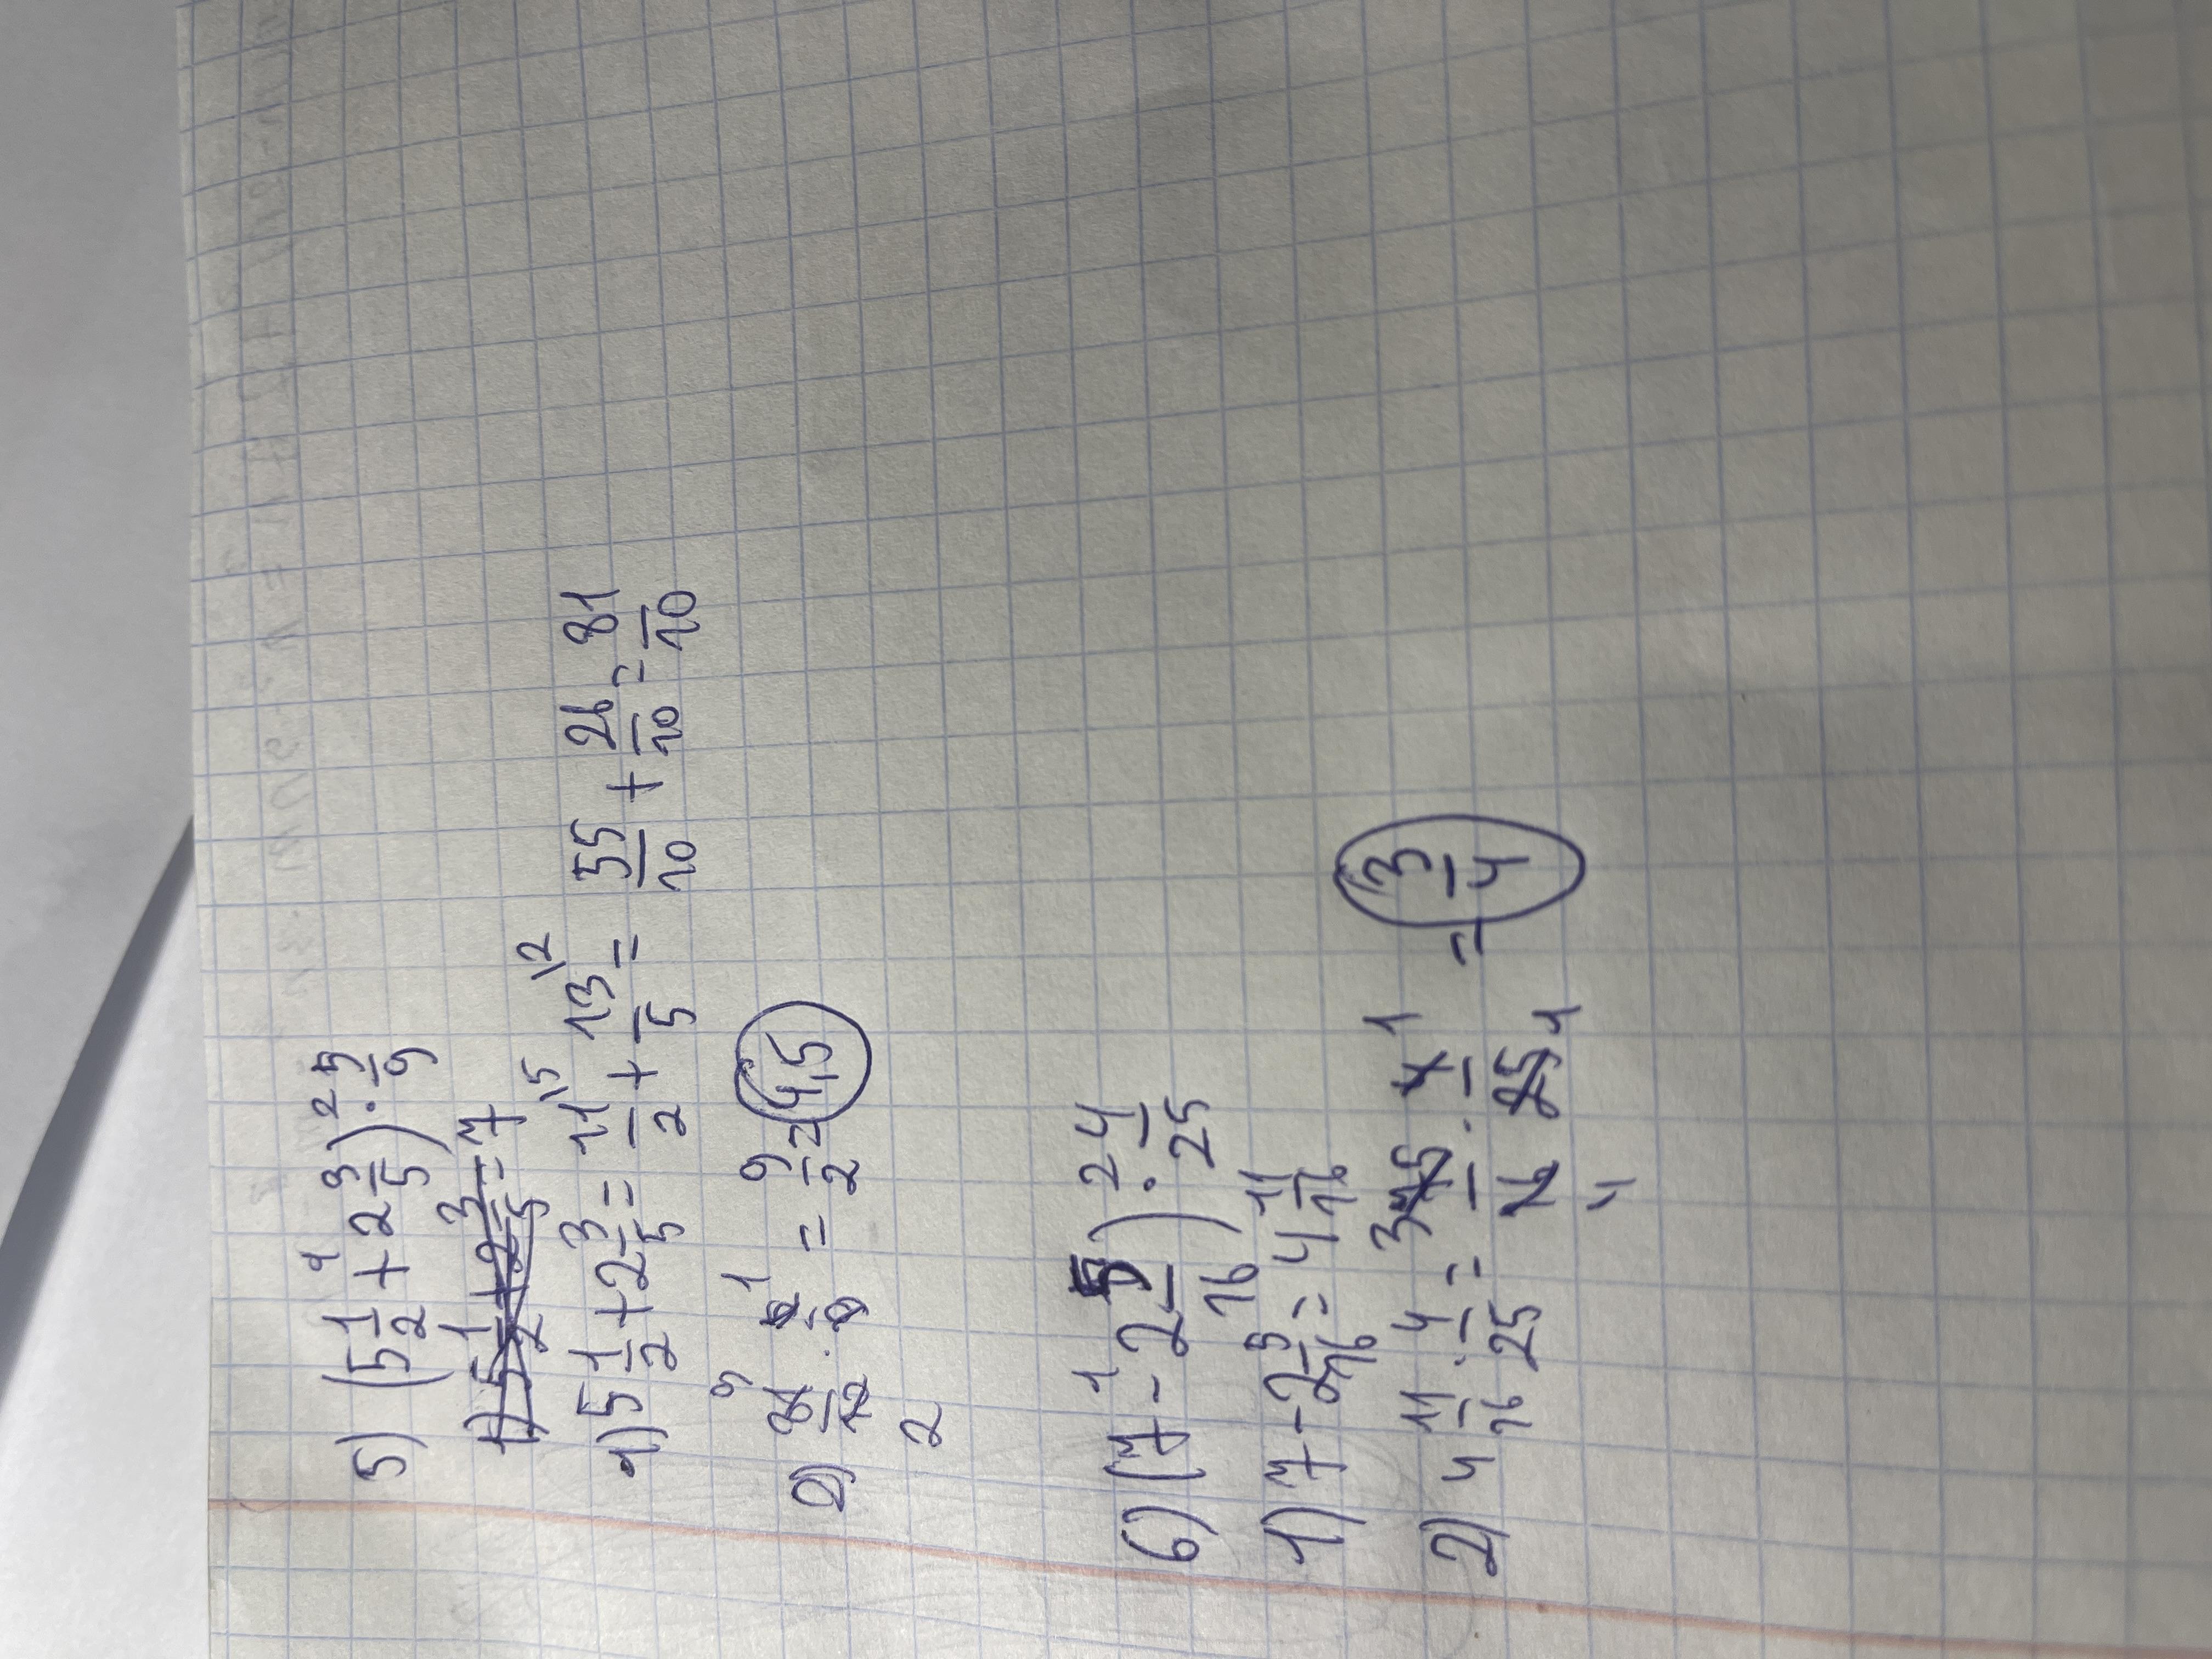 5) (5 1/2 + 2 3/5) · 5/9
1) 5 1/2 + 2 3/5 = 7
1) 5 1/2 + 2 3/5 = 11/2 \5 + 13/5 \2 = 55/10 + 26/10 = 81/10
2) 81/10 · 5/9 = 9/2 = 4,5
6) (7 - 2 5/16) · 4/25
1) 7 - 2 5/16 = 4 11/16
2) 4 11/16 · 4/25 = 75/16 · 4/25 = 3/4